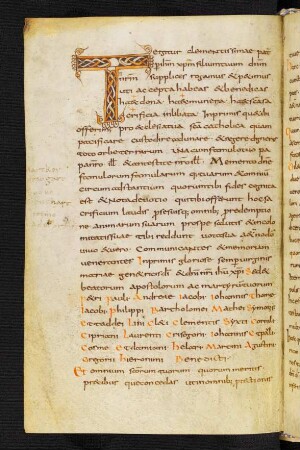 Te igitur clementissime pat
p ihm xpm filium tuum dnm
nrm supplices rogamus & petimus
uti accepta habeas & benedicas
haec dona haec munera haec sca sa
crificia inlibata In primis quae tibi
offerimus pro ecclesia tua sca catholica quam
pacificare custodire adunare & regere digneris
toto orbe terrarum una cum famulo tuo papa
nro ill & antestite nro ill Memento dne
famulorum famularumque tuarum & omnium
circum adstantium quorum tibi fides cognita
est & nota deuotio qui tibi offerunt hoc sa
crificium laudis p se suisque omnibus p redemptio
ne animarum suarum p spe salutis & incolu
mitatis suae tibi reddunt uota sua aeterno do
uiuo & uero Communicantes & memoriam
uenerantes In primis gloriosae semper uirginis
mariae genetricis di & dni nri ihu xpi Sed &
beatorum apostolorum ac martyrum tuorum
Petri Pauli Andreae Iacobi Iohannis Thome
Iacobi Philippi Bartholomei Mathei Symonis
Et taddei Lini Cleti Clementis Syxti Corneli
Cipriani Laurenti Crisogoni Iohannis & Pauli
Cosme & Damiani Helarii Martini Agustini
Gregorii Hieronimi Benedicti
Et omnium scorum tuorum quorum meritis
precibusque concedas ut in omnibus protectionis